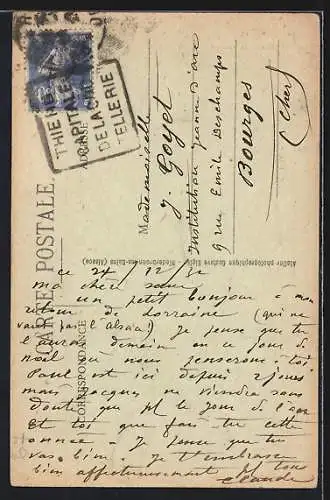 THIERS
CAPITALE
DE LA COU
TELLERIE
CARTE POSTALE
CORRESPONDANCE
ADRESSE
Atelier photographiques Gustave
Niederbronn-les-Bains (Alsace)
Mademoiselle
J. Goyet
Institution Jeanne d'arc
9 rue Emile Deschamps
Bourges
(Cher)
ce 24/12/32
ma chère
un petit bonjour à mon
retour de Lorraine (qui ne
vaut pas l'alsace!) Je pense que tu
l'auras demain en ce jour de
noël où nous penserons à toi
Paul est ici depuis 2 jours
mais Jacques ne viendra sans
doute que pr le jour de l'an
et toi que fais tu cette
année - Je pense que tu
vas bien. Je t'embrasse
bien affectueusement
Claude